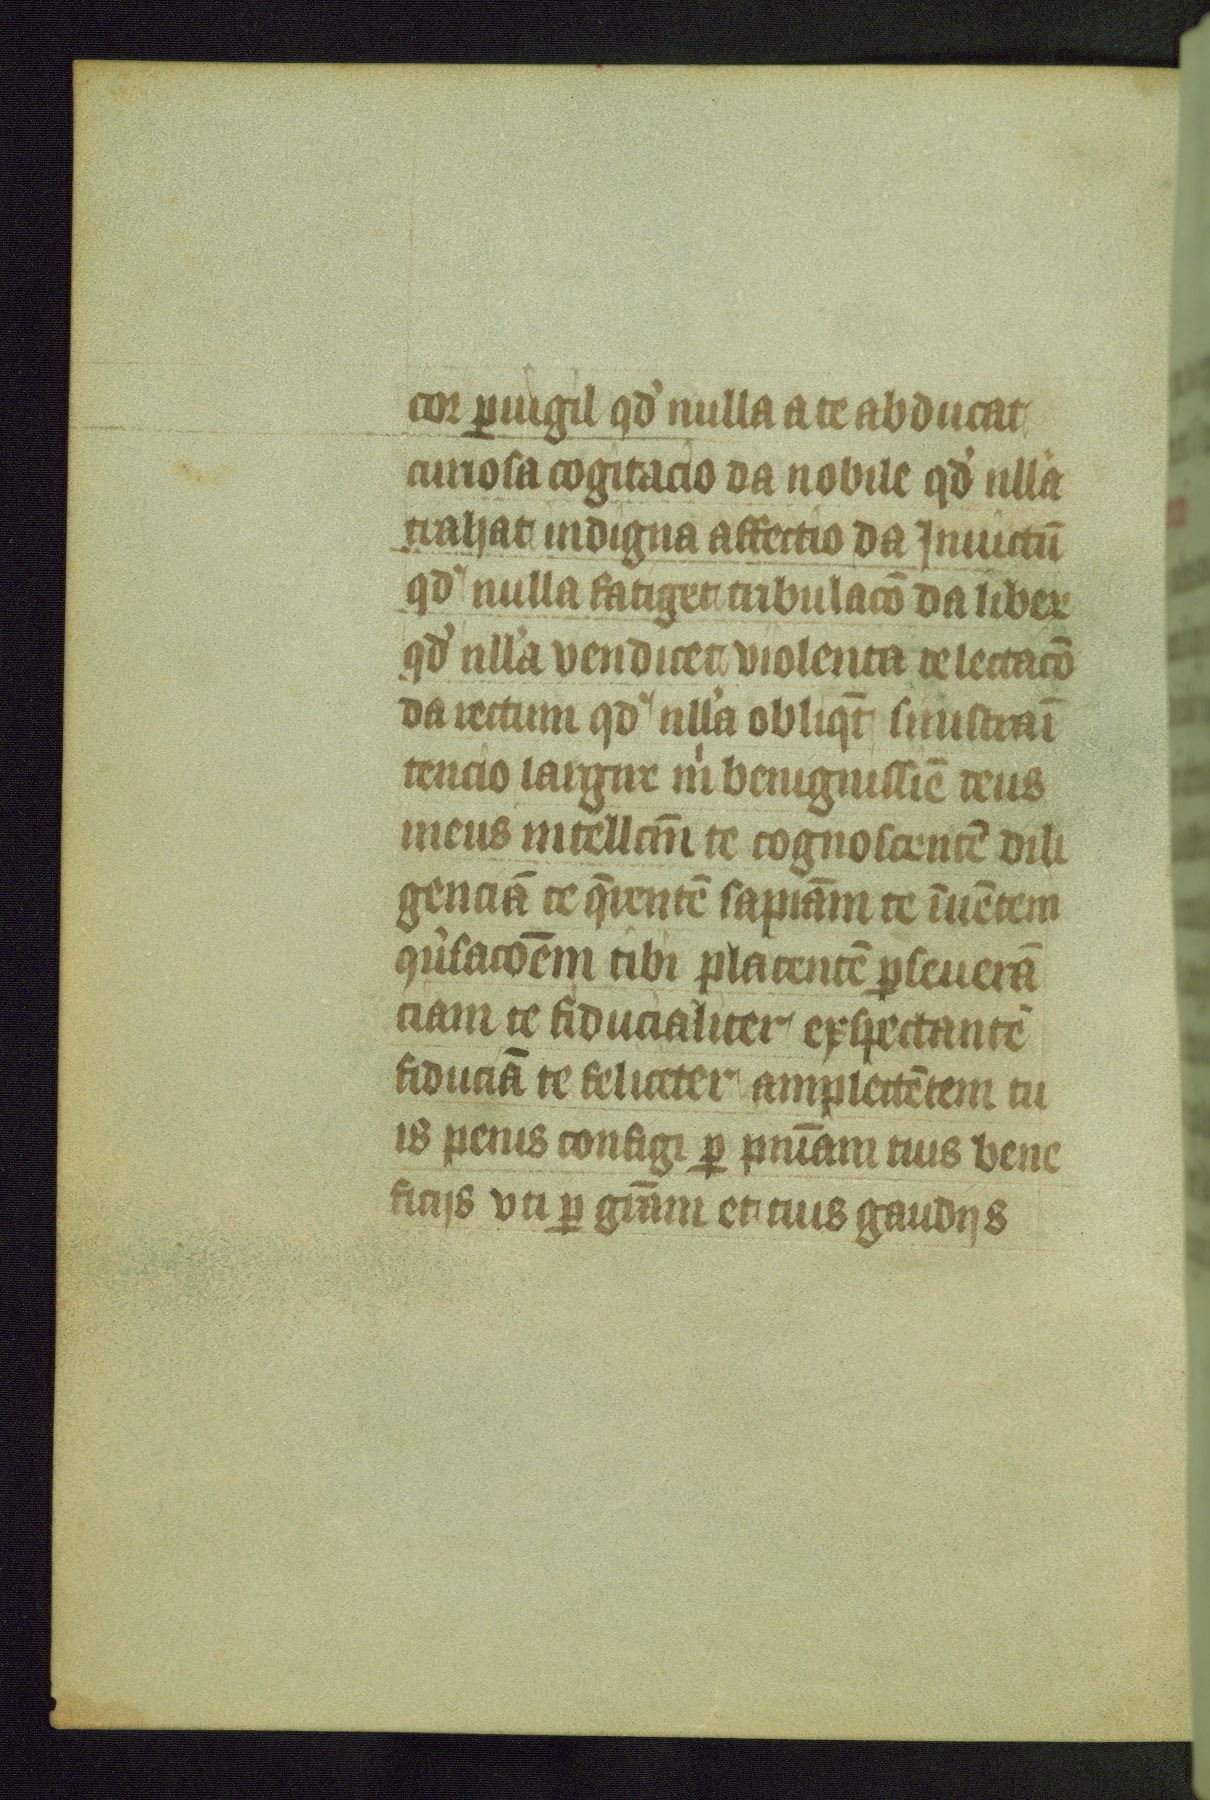 cor ꝑuigil qd' nulla a te abducat
curiosa cogitacio da nobile qd' nll'a
trahat indigna affectio da Inuictū
qd' nulla fatiget tribulacō da liber
qd' nll'a vendicet violenta delectacō
da rectum qd' nll'a obliq̄t sinistra ī
tencio largire m' benignissīē deus
meus intellc̄m te cognoscentē dili
genciā te q̄rentē sapiām te īuētem
qu'sacōēm tibi placentē ꝑseuerā
ciam te fiducialiter expectantē
fiduciā te feliceter amplectētem tu
is penis configi ꝑ pn̄iam tuis bene
ficijs vti ꝑ gr̄am et tuis gaudijs